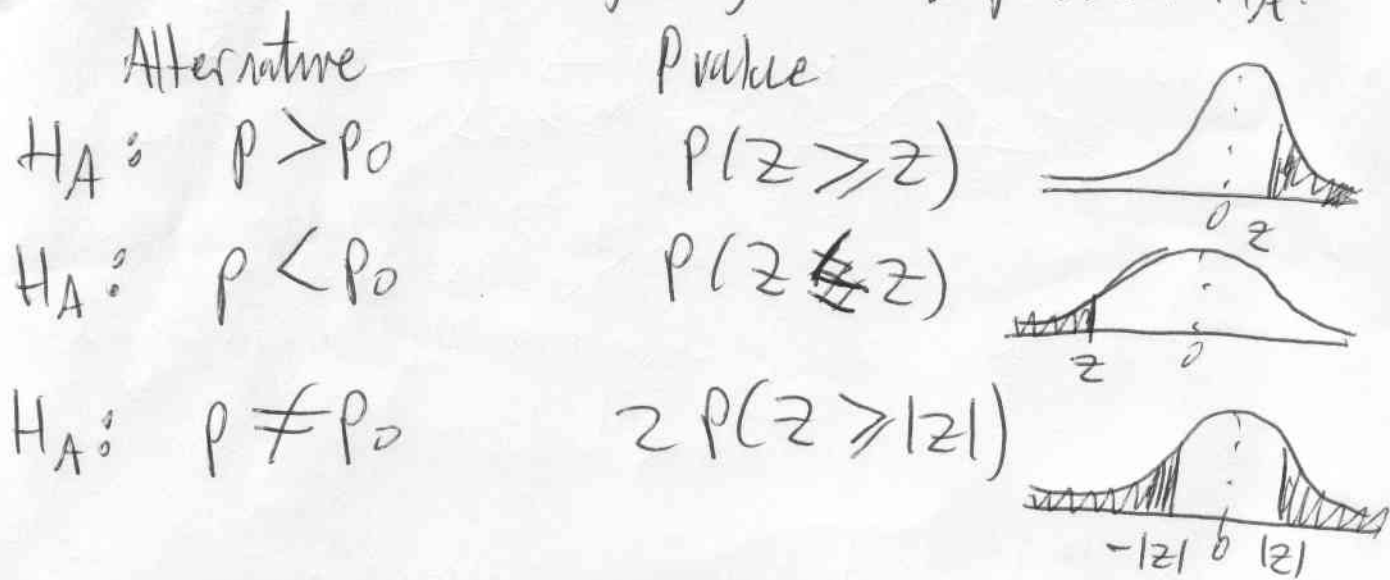 H_A:
Alternative P value
H_A: p > p₀ P(Z ≥ z)
0 z
H_A: p < p₀ P(Z ≤ z)
z 0
H_A: p ≠ p₀ 2 P(Z ≥ |z|)
-|z| 0 |z|